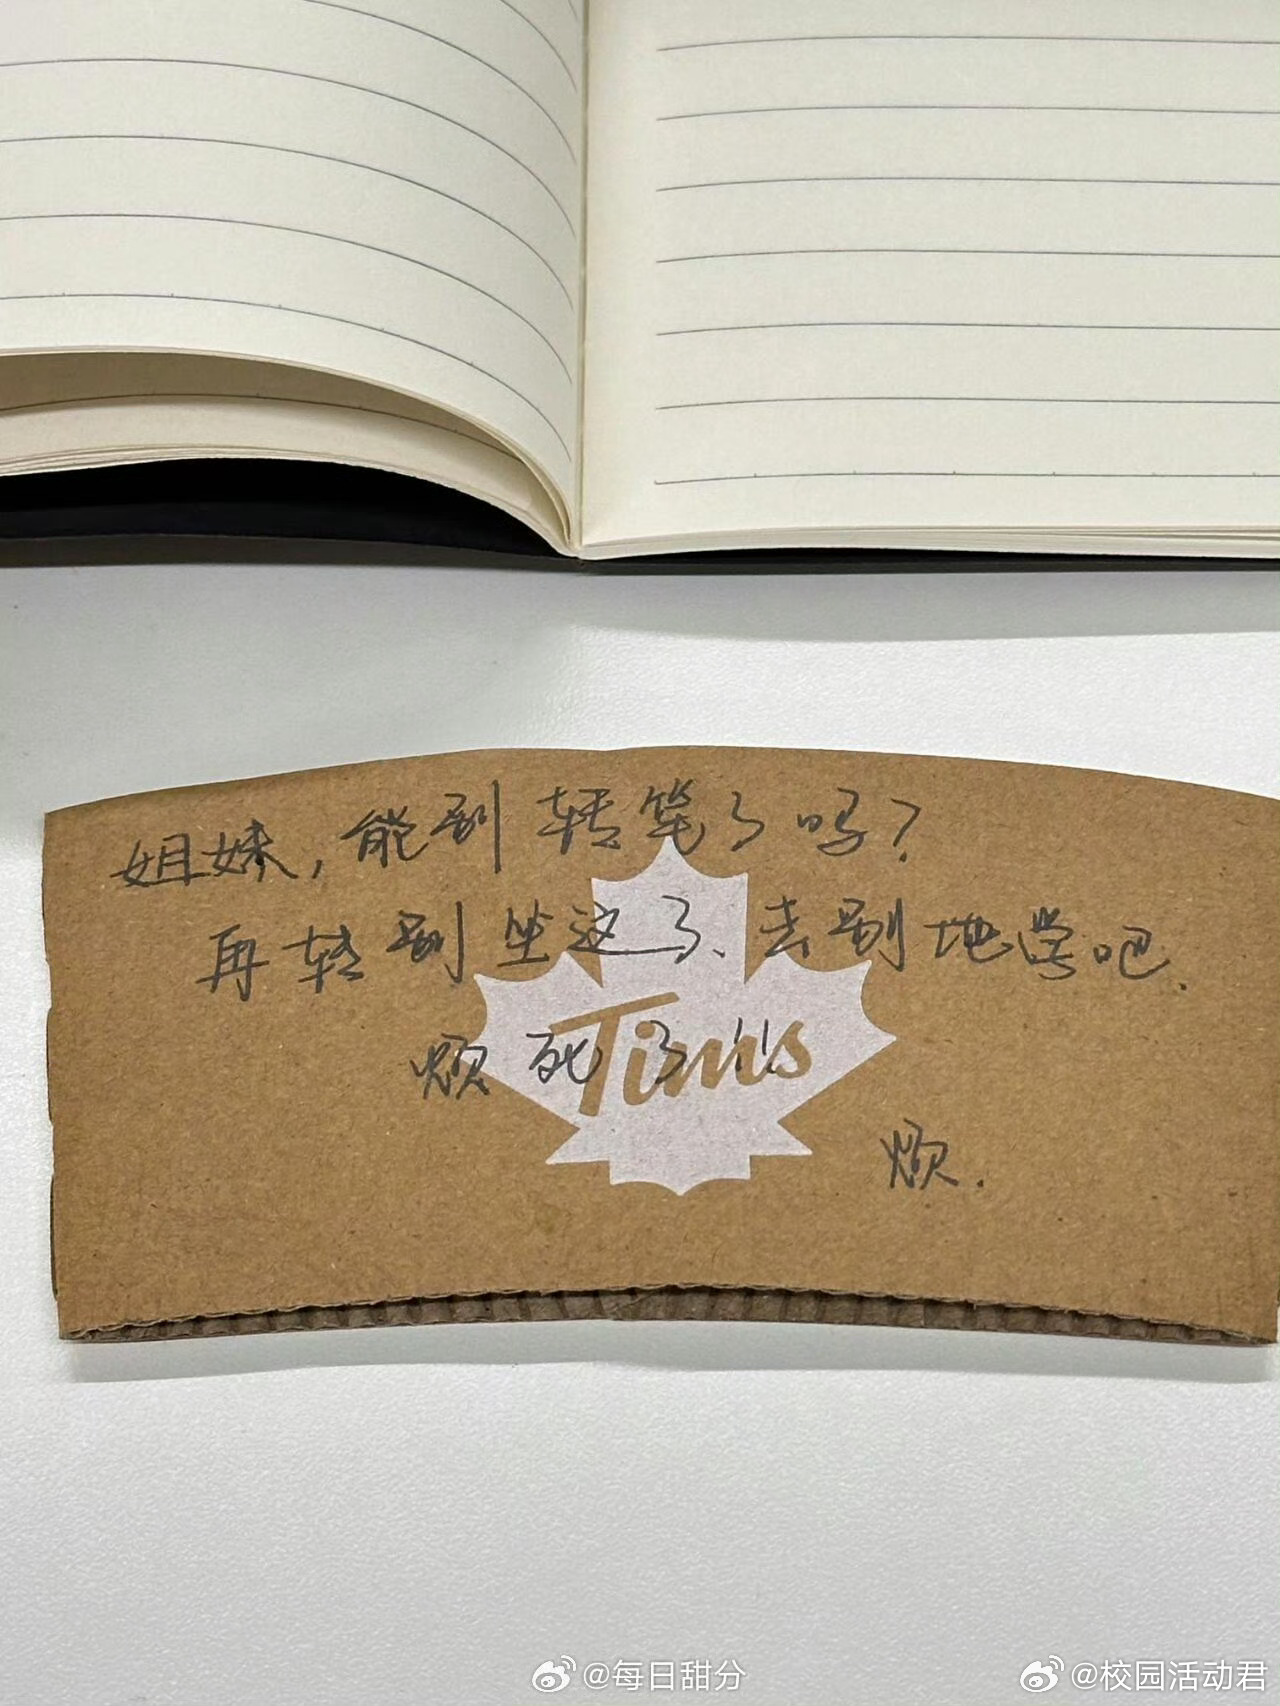 姐妹,能别转笔了吗?
再转别坐这了、去别地学吧.
烦死了!!
Tims
烦.
@每日甜分
@校园活动君